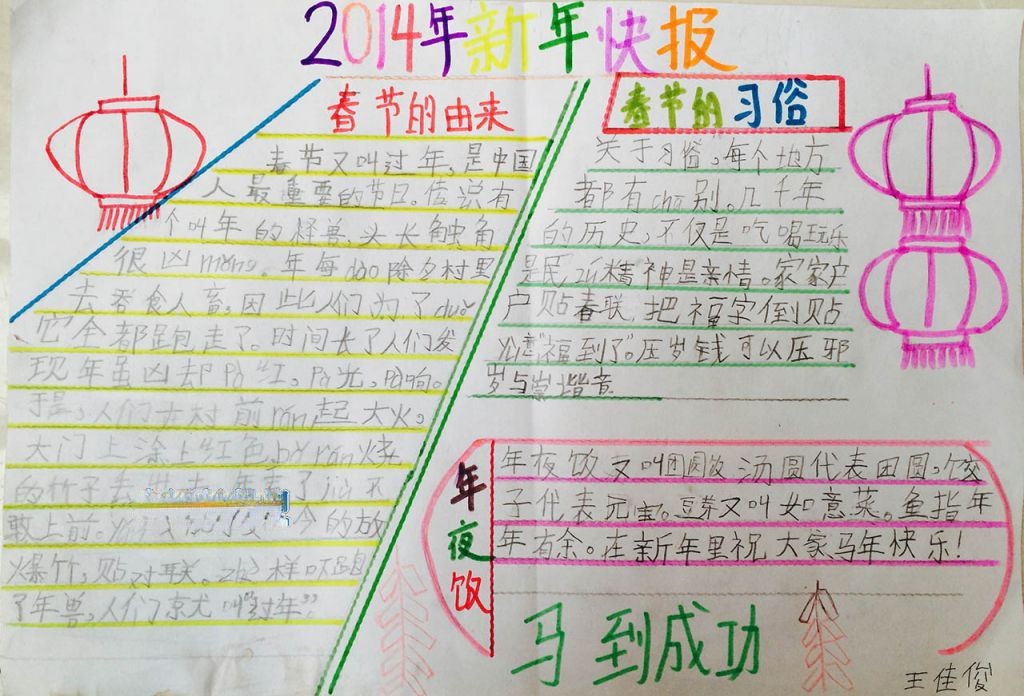 2014年新年快报
春节的由来
春节又叫过年，是中国
人最重要的节日。传说有
个叫年的怪兽，头长触角
很凶měng。年每dào除夕村里
去吞食人畜，因此人们为了duǒ
它全都跑走了。时间长了人们发
现年虽凶却pà红，pà光，响。
于是，人们去村前rán起大火，
大门上涂上红色，rán烧
的竹子去
敢上前。今的放
爆竹，贴对联。样吓跑
了年兽，人们叫“过年”。
春节的习俗
关于习俗，每个地方
都有chā别。几千年
的历史，不仅是吃喝玩乐
是民族精神是亲情。家家户
户贴春联，把福字倒贴
注意“福到了”。压岁钱可以压邪
岁与祟谐音
年夜饭
年夜饭又叫团圆饭 汤圆代表团圆，饺
子代表元宝。豆芽又叫如意菜。鱼指年
年有余。在新年里祝大家马年快乐！
马到成功
王佳俊